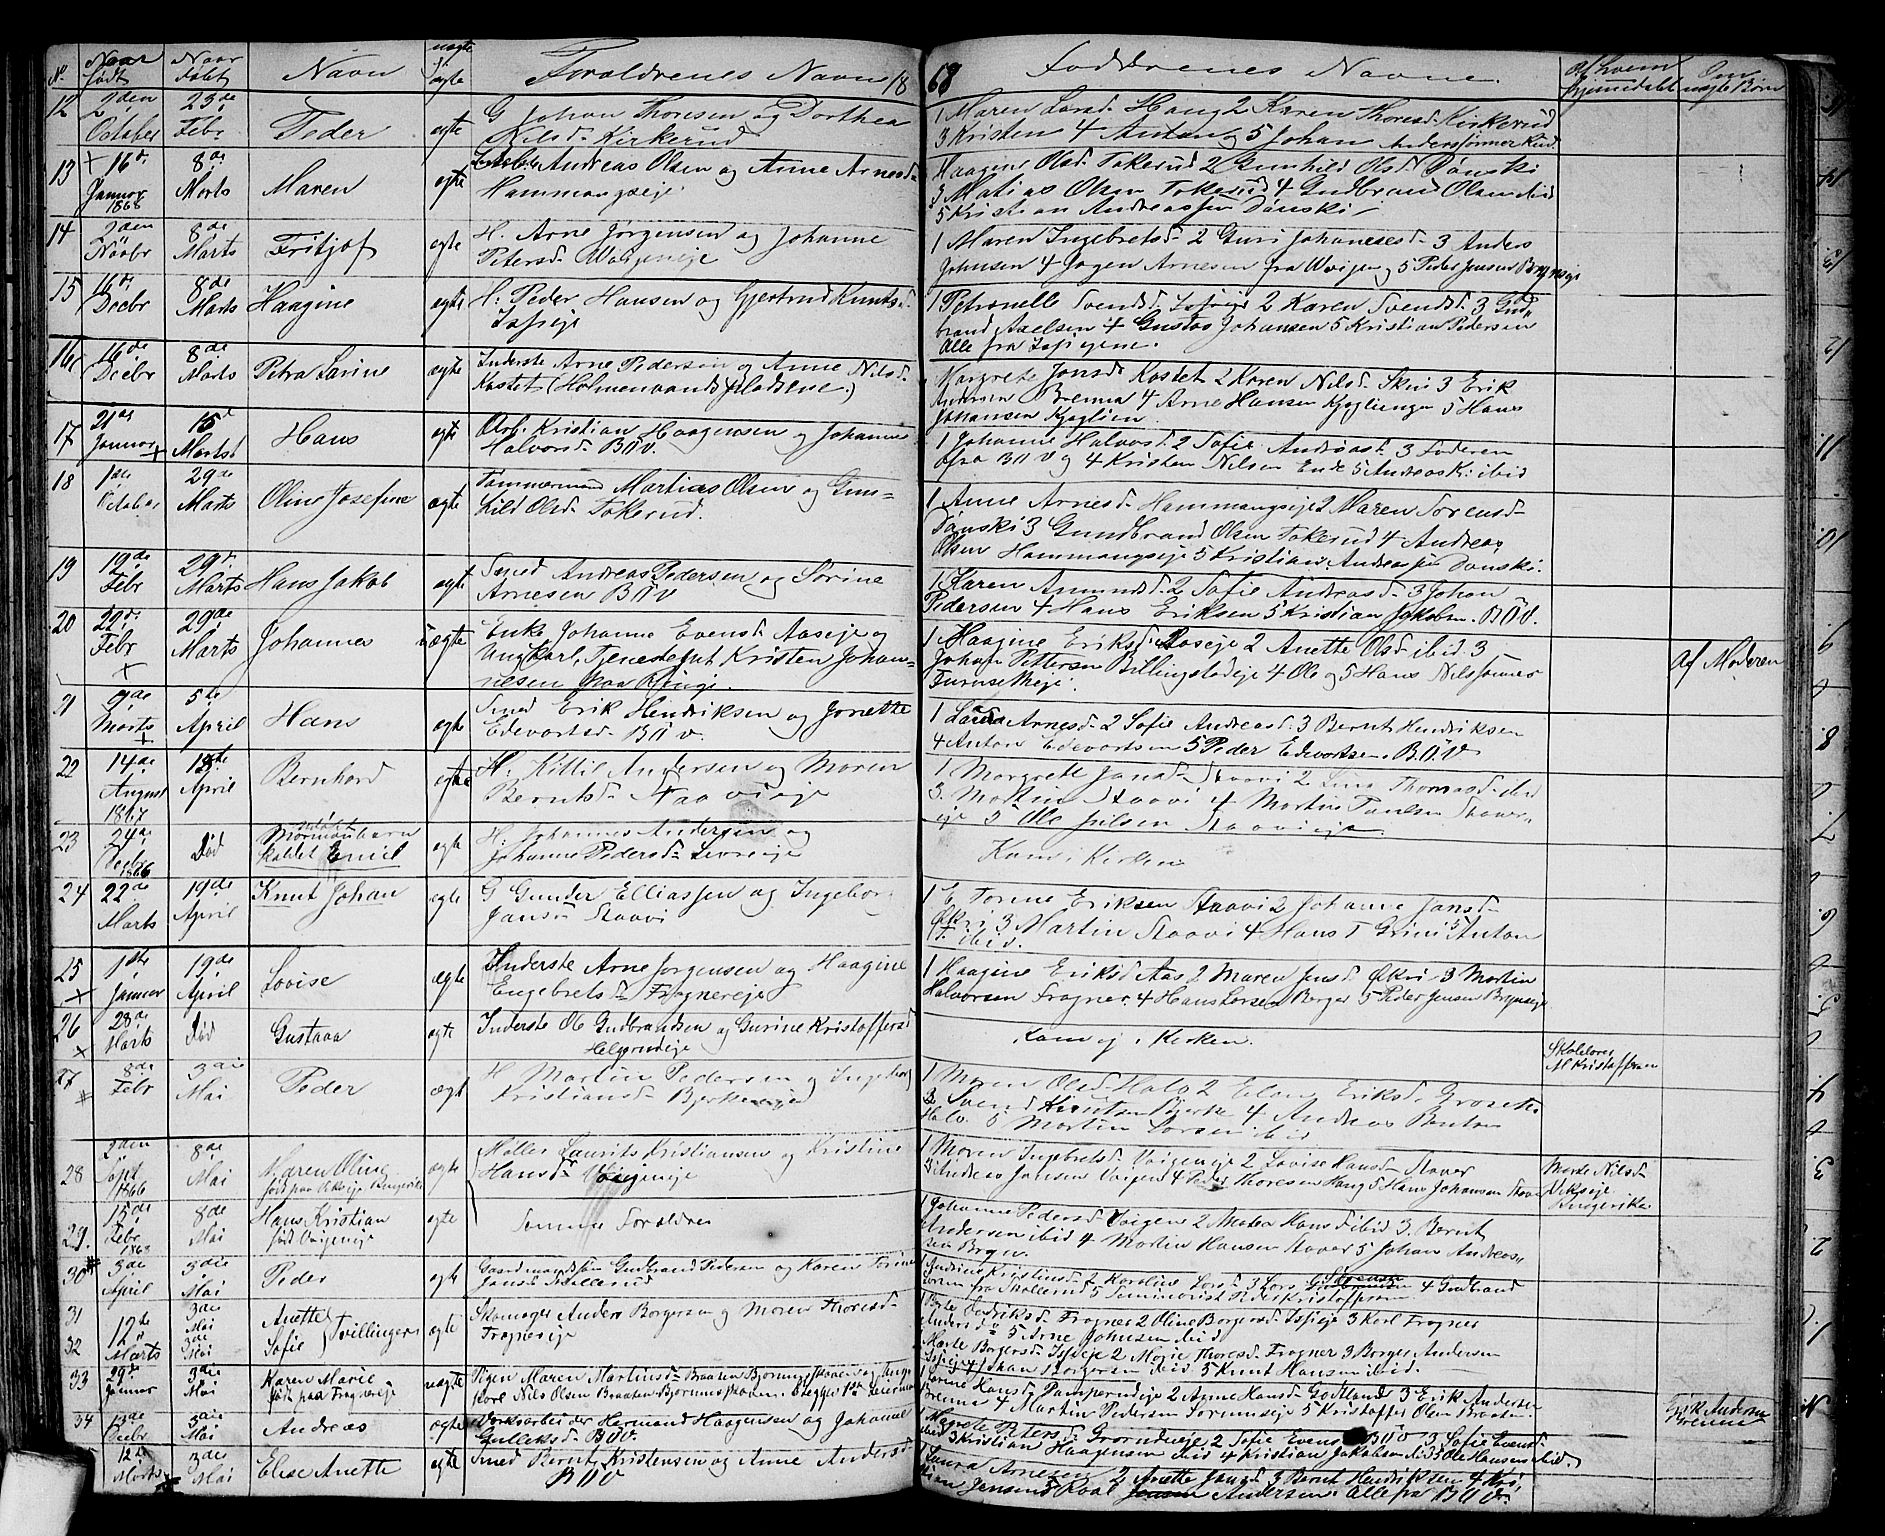 No Naar født Naar Døbt Navn uægte ell. ægte Forældrenes Navn 18
68 Faddrenes Navne. Af hvem hjemmedøbt Om uægte Børn
12 2den October 23de Febr Peder ægte G Johan Thoresen og Dorthea
Nilsd. Kirkerud
1 Maren Larsd. Haug 2 Karen Thoresd. Kirkerud
3 Kristen 4 Anton og 5 Johan Anderssønner
13 16de Januar 1868 8de Marts Maren ægte Andreas Olsen og Anne Arnesd.
Hammangseje
Haagine Olsd. Tokerud 2 Gunhild Olsd. Dønski
3 Matias Olsen Tokerud 4 Gudbrand Olsen ibid
5 Kristian Andreassen Dønski
14 2den Növbr 8de Marts Fritjof ægte H. Arne Jørgensen og Johanne
Petersd. Wøjeneje
1 Maren Ingebretsd. 2 Guri Johanesesd. 3 Anders
Johnsen 4 Jogen Arnesen fra Wøijen og 5 Peder Jensen Brynseje
15 16de Decbr 8de Marts Haagine ægte H: Peder Hansen og Gjertrud Knutsd.
Isfieje
1 Petronelle Svendsd. Isfieje 2 Karen Svendsd. 3 Gud=
brand Axelsen 4 Gustav Johansen 5 Kristian Pedersen
Alle fra Isfiejene.
16 16de Decbr 8de Marts Petra Larine ægte Inderste Arne Pedersen og Anne Nilsd.
Kastet (Holmenvandspladsene)
Margrete Jonsd. Kastet 2 Karen Nilsd. Skui 3 Erik
Andersen Brenna 4 Arne Hansen Kjaglienga 5 Hans
Johansen Kjaglien.
17 21de Januar 15de Marts Hans ægte Arb. Kristian Haagensen og Johanne
Halvorsd. BÖV.
1 Johanne Halvorsd. 2 Sofie Andreasd. 3 Faderen
fra BÖV og 4 Kristen Nilsen Ende 5 Andreas K. ibid
18 1ste October 29de Marts Oline Josefine ægte Tømmermand Martias Olsen og Gun=
hild Olsd. Tokerud.
1 Anne Arnesd. Hammangseje 2 Maren Torensd.
Dønski 3 Gundbrand Olsen Tokerud 4 Andreas
Olsen Hammangseje 5 Kristian Andreassen Dønski.
19 19de Febr 29de Marts Hans Jakob ægte Smed Andreas Pedersen og Sorine
Arnesen BÖV
1 Karen Amundsd. 2 Sofie Andreasd. 3 Johan
Pedersen 4 Hans Eriksen 5 Kristian Jakobsn. BÖV.
20 22de Febr 29de Marts Johannes uægte Enke Johanne Evensd. Aaseje og
Ungkarl, Tjenestefut Kristen Johan=
nesen paa Ringi.
1 Haagine Eriksd. Aaseje 2 Anette Olsd. ibid. 3
Johan Pettersen Billingstadeje 4 Ole og 5 Hans Nilssønner
Furuseteje. Af Moderen
21 9de Marts 5te April Hans ægte Smed Erik Hendriksen og Jonette
Edevartsd. BÖV.
1 Arnesd. 2 Sofie Andreasd. 3 Bernt Hendriksen
4 Anton Edevartsen 5 Peder Edevartsen. BÖV
22 14de August 1867 13de April Bernhard ægte H. Kittil Andersen og Maren
Berntsd. Staavieje
1 Margrete Jansd. Staavi 2 Lina Thomasd. ibid
3. Martin Staavi 4 Martin Paulsen Staavi=
eje 5 Ole Juelsen Staavieje.
23 24de Decbr 1866 Død kaldet Emil ægte H. Johannes Andersen og
Johanne Pedersd. Levreeje
Kom i Kirken
24 22de Marts 19de April Knut Johan ægte G Gunder Elliassen og Ingebor
Jansd. Staavi
1 E Torine Eriksen Staavi 2 Johanne Jansd.
Økri 3 Martin Staavi 4 Hans T Grini 5 Anton
T. ibid.
25 1ste Januar 19de April Lovise ægte Inderste Arne Jørgensen og Haagine
Engebretsd. Frognereje
1 Haagine Eriksd. Aas 2 Maren Jensd. Økri 3 Martin
Halvorsen Frogner. 4 Hans Larsen Berger 5 Peder Jensen Brynseje
26 28de Marts Død Gustava ægte Inderste Ole Gudbrandsen og Gurine Kristoffersd
Helgerudeje
Kom ej i Kirken. Skolelærer
M Kristoffersen
27 8de Febr 3die Mai Peder ægte H Martin Pedersen og Ingeborg
Kristiansd. Bjerkeneje
1 Maren Olsd. Halv 2 Elen Eriksd. Groset
3 Svend Knutsen Bjerke 4 Andreas Bonton
Halv. 5 Martin Larsen ibid
28 2den Sept 1866 8de Mai Maren Oline ægte Møller Laurits Kristiansen og Kristine
født paa Vikseje Ringerike Hansd. Wøijeneje
1 Maren Ingebretsd. Vøijeneje 2 Lovise Hansd. Staver
3 Andreas Jansen Vøijen 4 Peder Thoresen Haug 5 Hans Johansen Staver
Marte Nilsd.
Vikseje
Ringerike
29. 15de Febr 1868 8de Mai Hans Kristian ægte Samme Forældre
født Vøijeneje
1 Johanne Pedersd. Vøijen 2 Matea Hansd. ibid 3. Bernt
Andersen ibid 4 Martin Hansen Staver 5 Johan Andreas=
sen Bryn.
30 3de April 3die Mai Peder ægte Gaardmandssøn Gundbrand Pedersen og Karen Torine
Jansd. Skallerud
1 Andrine Kristiansd. 2 Karoline Larsd. 3 Lars Sørensen 4 Gudbrand
Soren fra Skollerud 5 Seminarist Peder Kristoffersen
31 12te Marts 3die Mai Anette } Tvillinger ægte Skomager Anders Borgersen og Maren Thoresd.
32 3die Mai Sofie Frogneseje
Berte Hendriksd. Frogner 2 Oline Borgersd. Isfieje 3 Karl Frogner
Andersd. 5 Arne Johnsen ibid
Marte Borgersd. Isfieje 2 Marie Thoresd. Frogner 3 Borger Andersen
Isfieje 4 Johan Borgersen ibid 5 Knut Hansen ibid.
33 29de Januar 3die Mai Karen Marie uægte Pigen Maren Martinsd. Braaten Bjørumsskoven og Unge
født paa Frognereje karl Nils Olsen Braaten Bjørumsskoven. Begges 1ste Leiermaal
Karine Hansd. Tamperudeje 2 Anne Hansd. Godtland 3 Erik Andersen
Brenna 4 Martin Pedersen Torumseje 5 Kristoffer Olsen Braaten. Erik Andersen
Brenna
34 13de Decbr 3die Mai Andreas ægte Værksarbeider Hermand Haagensen og Johanne
Gulleksd. BÖV.
Magrete Petersd. Grorudeje 2 Sofie Evensd. BÖV 3 Sofie Evensd.
ibid 3 Kristian Haagensen ibid 4 Kristian Jakobsen ibid 5 Ole Hansen ibid.
12te Marts 3die Mai Elise Anette ægte Smed Bernt Kristensen og Anne Andersd
BÖV
Laura Arnesen 2 Anette Jansd. 3 Bernt Hendriksen 4 Kri=
stian Jensen 5 Roal Andersen. Alle fra BÖV.